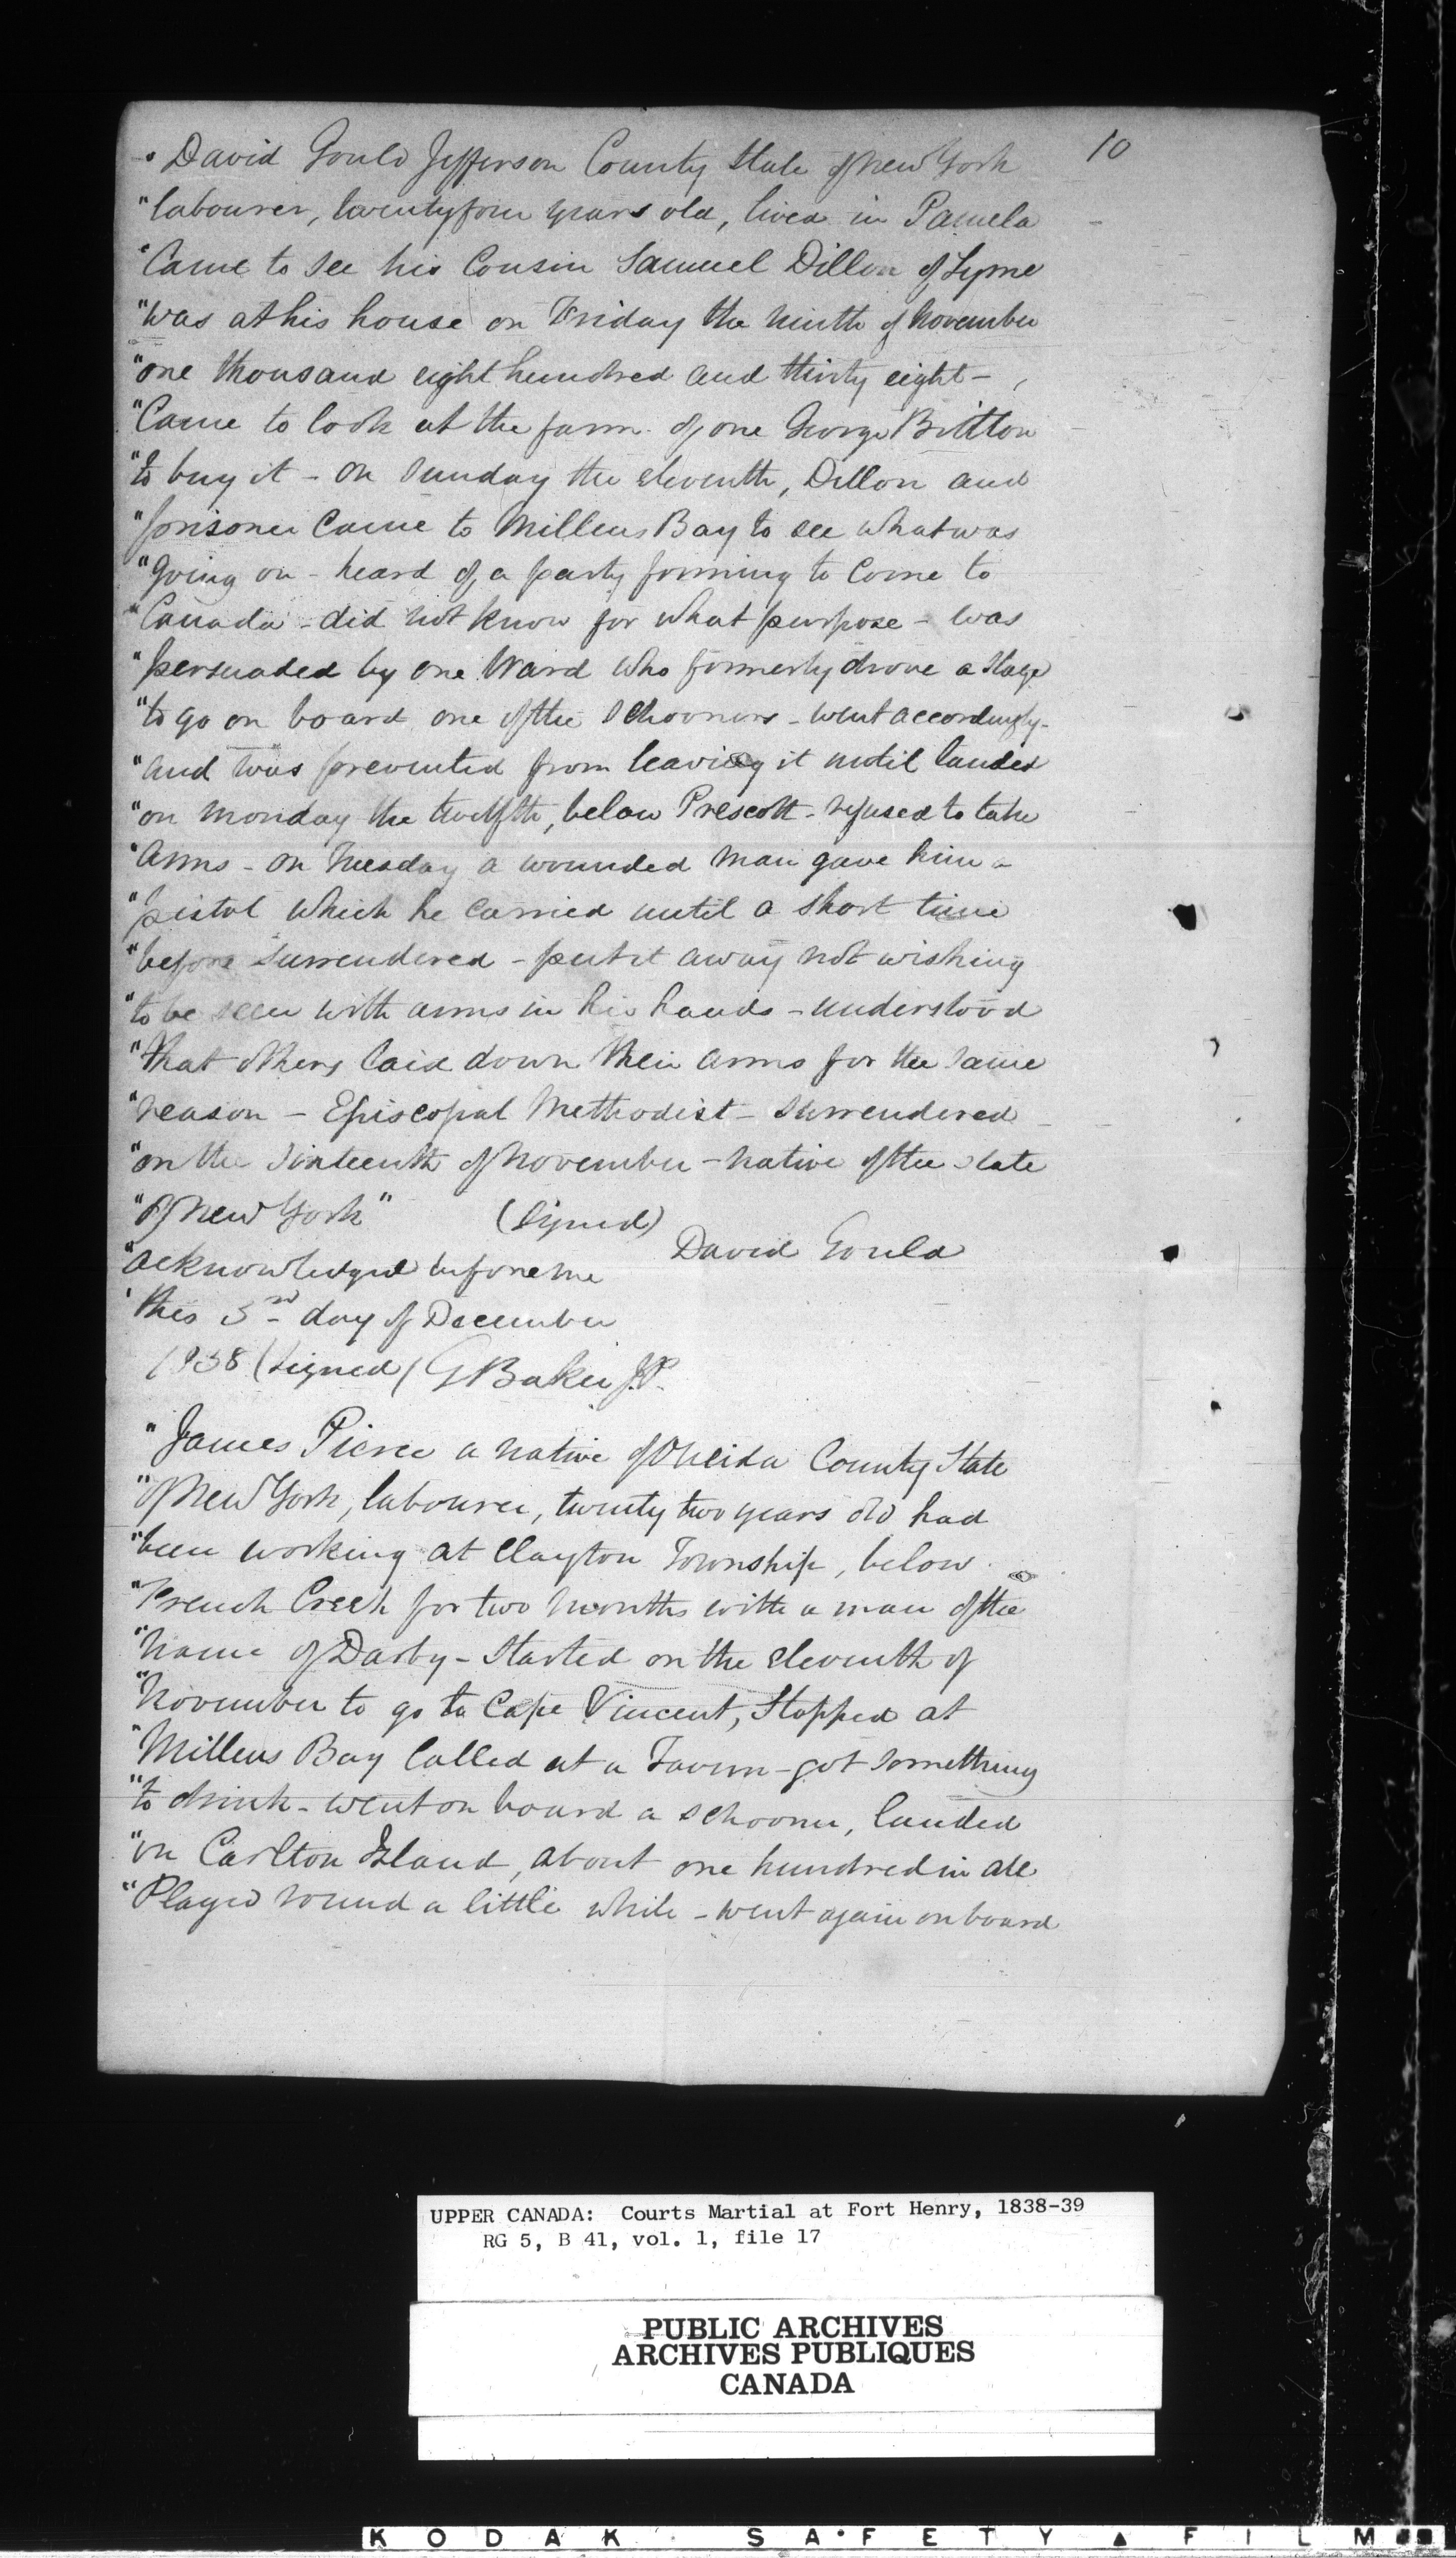 10
" David Gould Jefferson County State of New York
"labourer, twentyfour years old, lived in Pamela
"Came to see his Cousin Samuel Dillon of Lyme
"was at his house on Friday the ninth of November
"one thousand eight hundred and thirty eight -
"Came to look at the farm of one George Britton
"to buy it - on Sunday the eleventh, Dillon and
"prisoner Came to Millens Bay to see what was
"going on - heard of a party forming to Come to
"Canada - did not know for what purpose - was
"persuaded by one Ward who formerly drove a Stage
"to go on board one of the Schooners - went accordingly -
"and was prevented from leaving it until landed
"on Monday the twelfth, below Prescott - refused to take
"Arms - on Tuesday a wounded man gave him a
"pistol which he carried until a short time
"before Surrendered - put it away not wishing
"to be seen with arms in his hands - understood
"that others laid down their arms for the same
"reason - Episcopal Methodist - Surrendered
"on the Sixteenth of November - native of the State
"of New York" (Signed)
David Gould
"acknowledged before me
"this 3rd day of December
1838 (Signed) G Baker J.P.
"James Pierce a native of Oneida County State
"of New York, labourer, twenty two years old had
"been working at Clayton Township, below
"French Creek for two months with a man of the
"name of Darby - Started on the eleventh of
"November to go to Cape Vincent, Stopped at
"Millens Bay Called at a Tavern - got something
"to drink - went on board a schooner, landed
"on Carlton Island, about one hundred in all
"Played round a little while - went again on board
UPPER CANADA: Courts Martial at Fort Henry, 1838-39
RG 5, B 41, vol. 1, file 17
PUBLIC ARCHIVES
ARCHIVES PUBLIQUES
CANADA
KODAK · SAFETY ▲ FILM